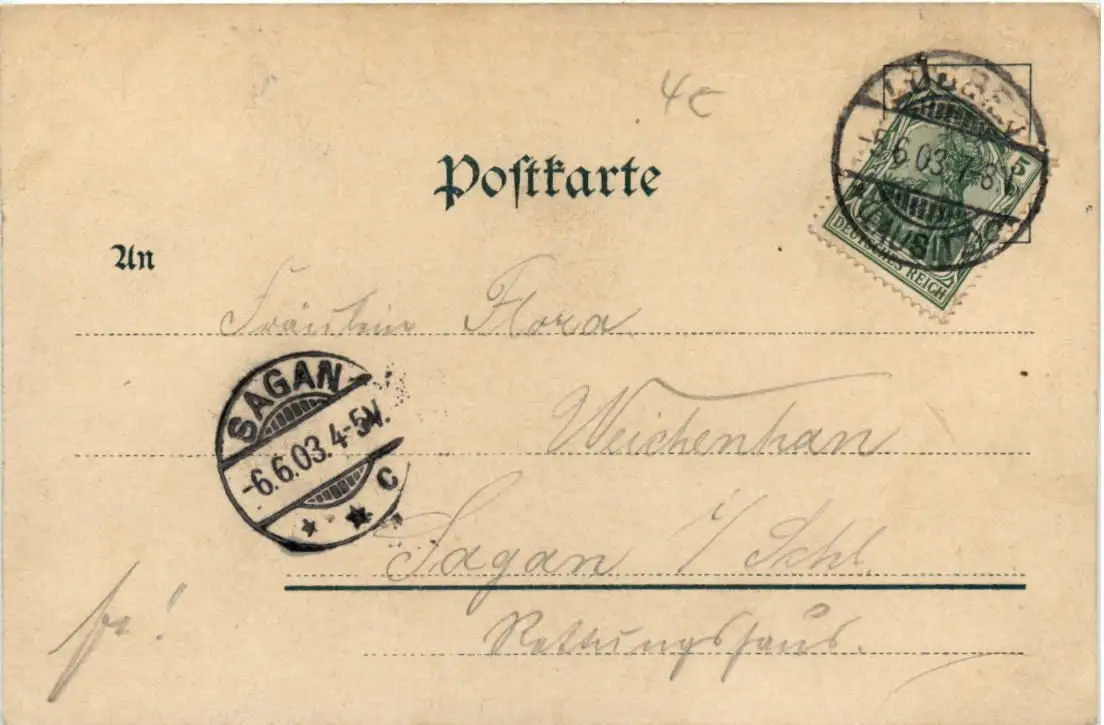 4c
Postkarte
5
-5.6.03.7-8V.
(LAUSITZ) C
DEUTSCHES REICH
An
Fräulein Flora
SAGAN
-6.6.03.4-5V.
* * C
Weichenhan
Sagan i/Schl.
Rettungshaus.